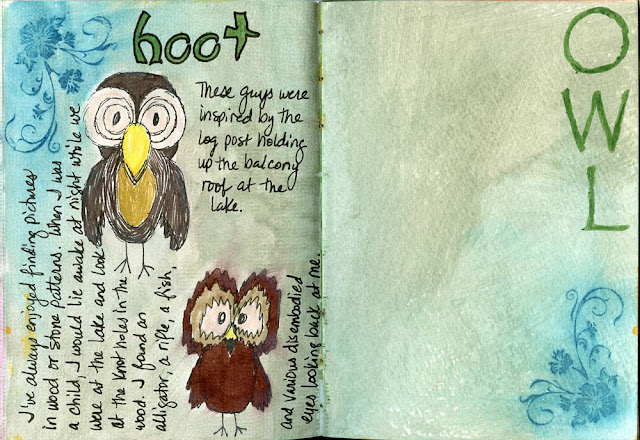 hoot
These guys were
inspired by the
log post holding
up the balcony
roof at the
lake.
I've always enjoyed finding pictures
in wood or stone patterns. When I was
a child, I would lie awake at night while we
were at the lake and look
at the knot holes in the
wood. I found an
alligator, a rifle, a fish,
and various disembodied
eyes looking back at me.
OWL